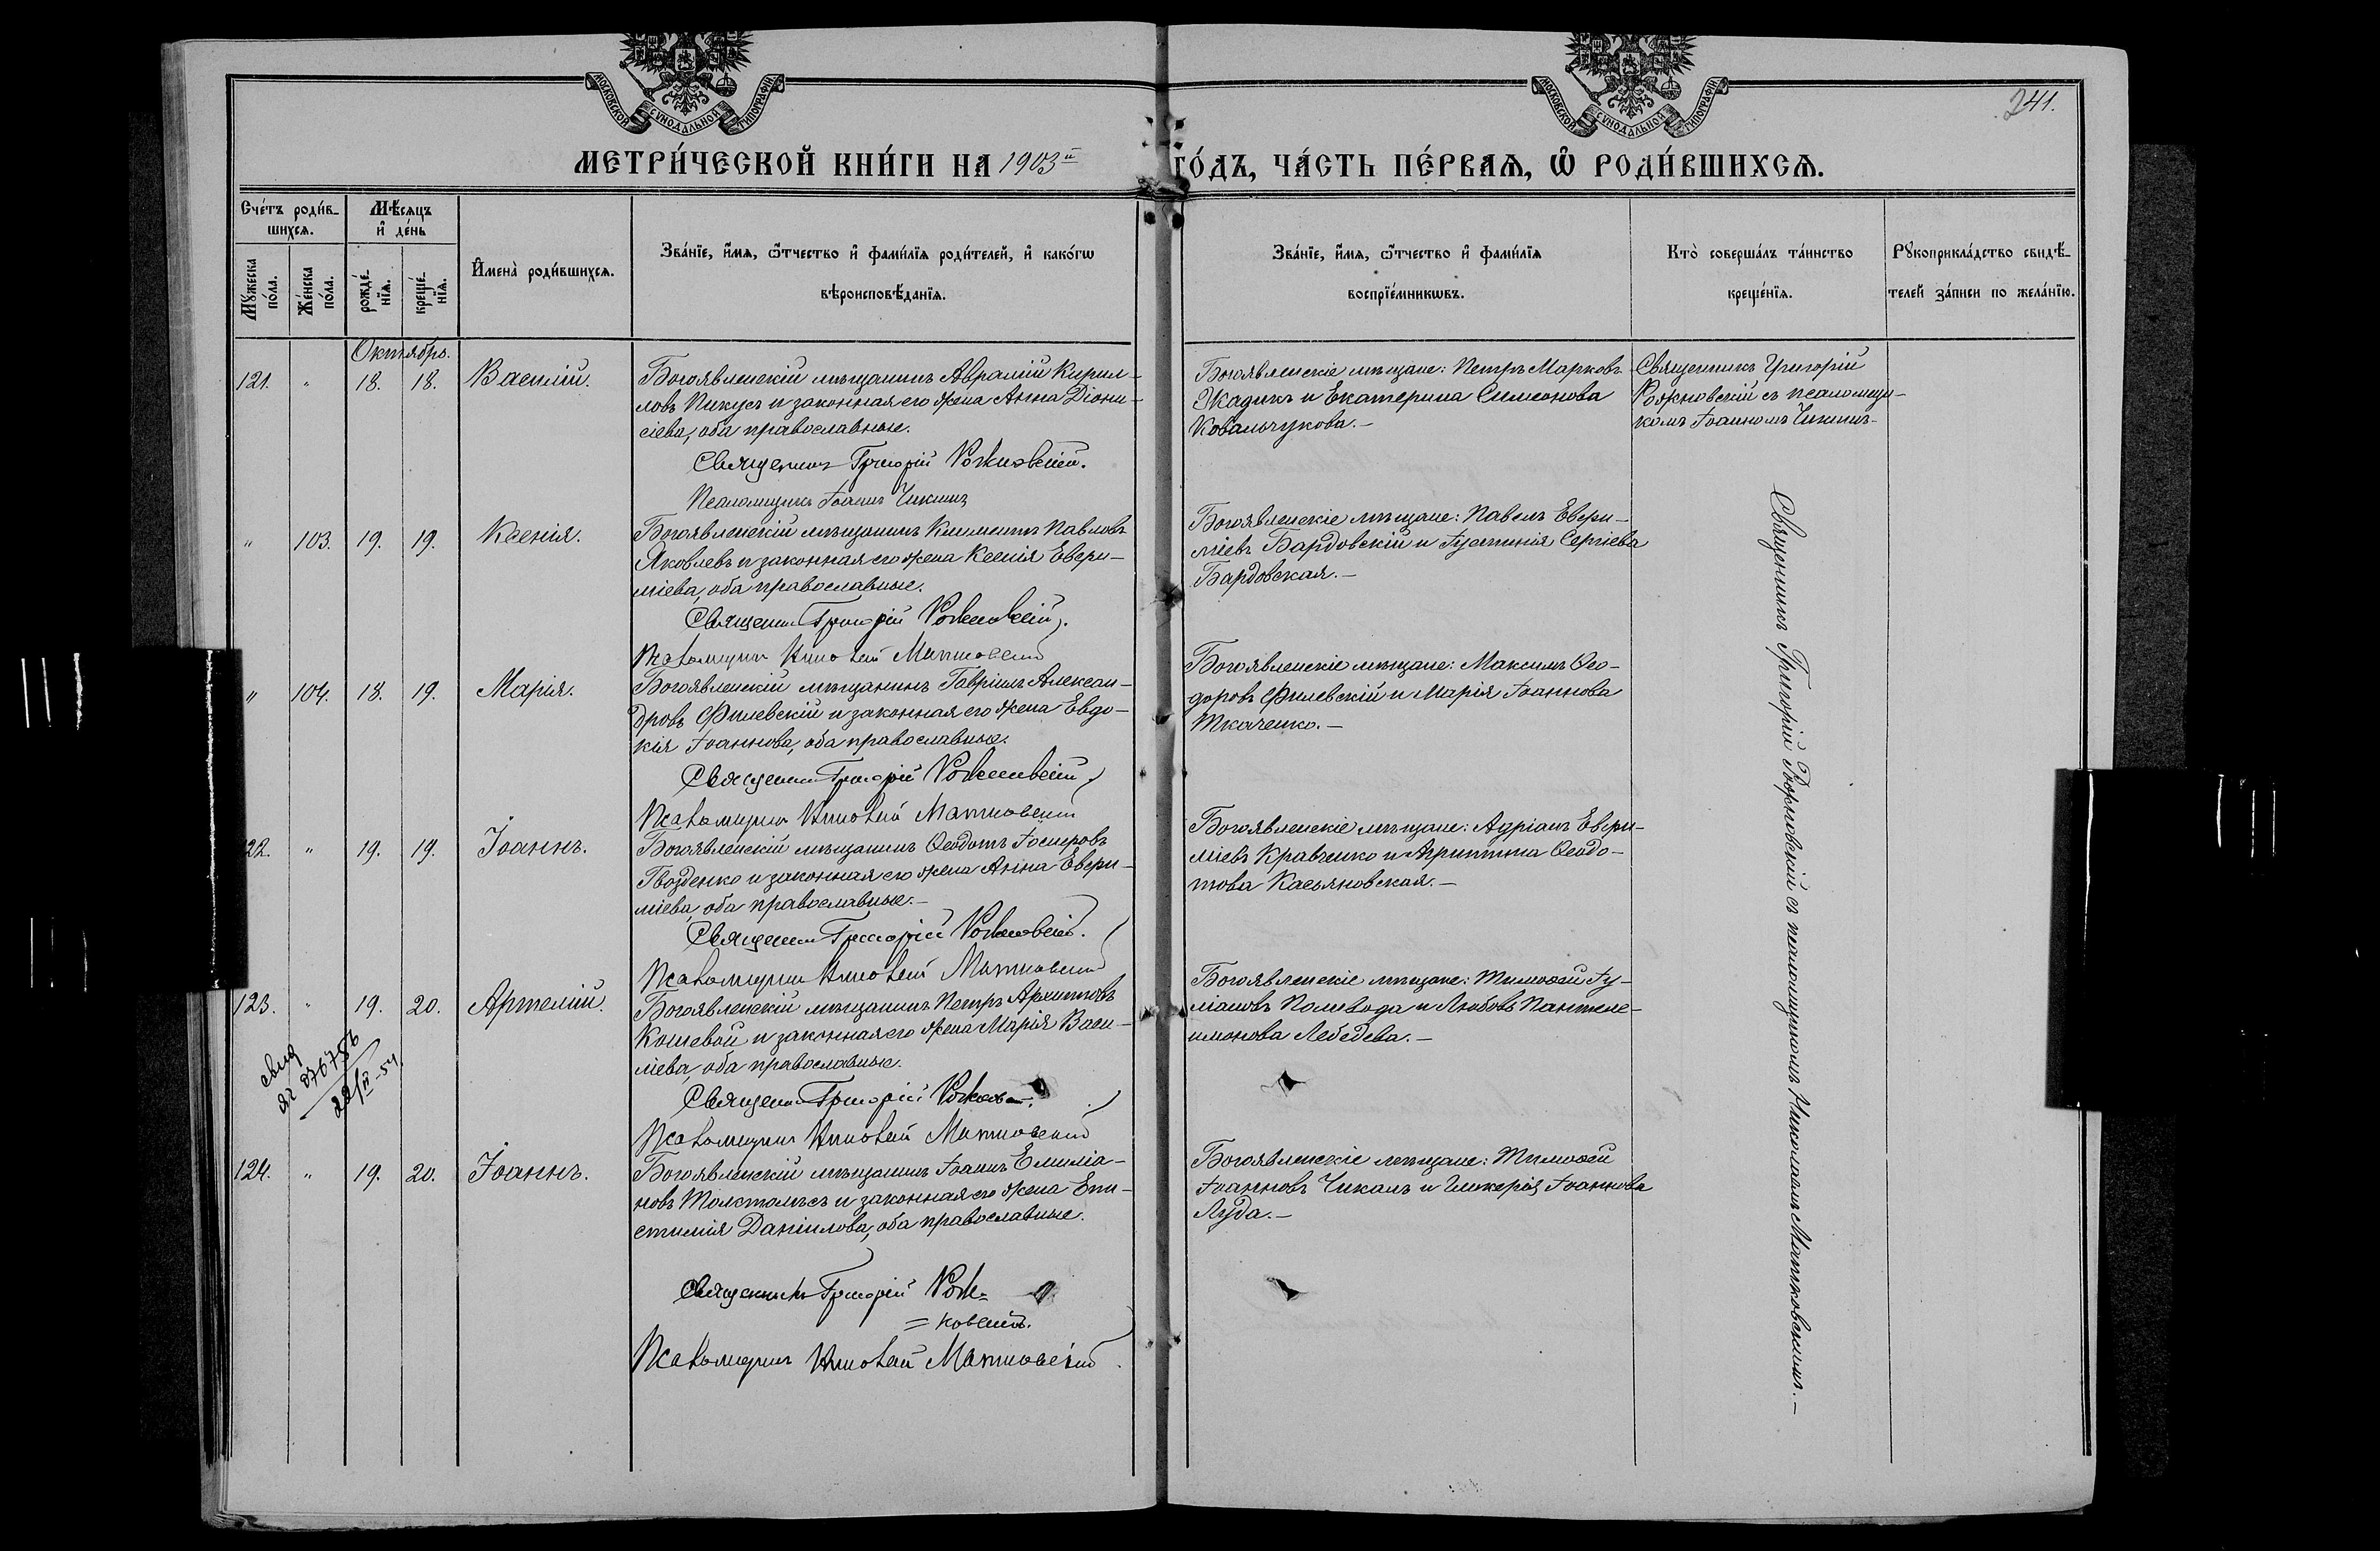 МОСКОВСКОЙ СѴНОДАЛЬНОЙ ТИПОГРАФІИ
МОСКОВСКОЙ СѴНОДАЛЬНОЙ ТИПОГРАФІИ
241.
МЕТРИ́ЧЕСКОЙ КНИ́ГИ НА 1903й ГО́ДЪ, ЧА́СТЬ ПЕ́РВАѦ, Ѡ РОДИ́ВШИХСѦ.
Сче́тъ роди́в-
шихсѧ.
Мѣ́сѧцъ
и де́нь
Мꙋ́жеска
по́ла.
Же́нска
по́ла.
рожде́-
нїѧ.
креще́-
нїѧ.
Имена̀ роди́вшихсѧ.
Зва́нїе, и́мѧ, ѻ́тчество и фами́лїѧ роди́телей, и како́гѡ
вѣроисповѣ́данїѧ.
Зва́нїе, и́мѧ, ѻ́тчество и фами́лїѧ
воспрїе́мникѡвъ.
Кто̀ соверша́лъ та́инство
креще́нїѧ.
Рꙋкоприкла́дство свидѣ́-
телей за́писи по жела́нїю.
Октябрь.
121. " 18. 18. Василій.
Богоявленскій мѣщанинъ Авраамій Кирил-
ловъ Пикусъ и законная его жена Анна Діони-
сіева, оба православные.
Священникъ Григорій Рожновскій.
Псаломщикъ Іоаннъ Чикинъ
Богоявленскіе мѣщане: Петръ Марковъ
Жадикъ и Екатерина Симеонова
Ковальчукова.-
Священникъ Григорій
Рожновскій съ псаломщи-
комъ Іоанномъ Чикинъ-
" 103. 19. 19. Ксенія.
Богоявленскій мѣщанинъ Климентъ Павловъ
Яковлевъ и законная его жена Ксенія Евфи-
міева, оба православные.
Священникъ Григорій Рожновскій.
Псаломщикъ Николай Матковскій
Богоявленскіе мѣщане: Павелъ Евфи-
міевъ Бардовскій и Іустинія Сергіева
Бардовская.-
" 104. 18. 19. Марія.
Богоявленскій мѣщанинъ Гавріилъ Алексан-
дровъ Филевскій и законная его жена Евдо-
кія Іоаннова, оба православные.
Священникъ Григорій Рожновскій
Псаломщикъ Николай Матковскій
Богоявленскіе мѣщане: Максимъ Ѳео-
доровъ Филевскій и Марія Іоаннова
Ткаченко.-
22. " 19. 19. Іоаннъ.
Богоявленскій мѣщанинъ Ѳеодотъ Іосифовъ
Гвозденко и законная его жена Анна Евфи-
міева, оба православные.-
Священникъ Григорій Рожновскій.
Псаломщикъ Николай Матковскій
Богоявленскіе мѣщане: Адріанъ Евфи-
міевъ Кравченко и Агриппина Ѳеодо-
това Касьяновская.-
123. " 19. 20. Артемій.
свид
яг 276756
22/II-54
Богоявленскій мѣщанинъ Петръ Архиповъ
Кошевой и законная его жена Марія Васи-
ліева, оба православные.
Священникъ Григорій
Псаломщикъ Николай Матковскій
Богоявленскіе мѣщане: Тимоѳей Іу-
ліановъ Поливода и Любовь Пантеле-
имонова Лебедева.-
124. " 19. 20. Іоаннъ.
Богоявленскій мѣщанинъ Іоаннъ Емиліа-
новъ и законная его жена Епи-
стимія Даніилова, оба православные.
Священникъ Григорій Рож-
=новскій.
Псаломщикъ Николай Матковскій
Богоявленскіе мѣщане: Тимоѳей
Іоанновъ Чикалъ и Гликерія Іоаннова
Луда.-
Священникъ Григорій Рожновскій съ псаломщикомъ Николаемъ Матковскимъ.-